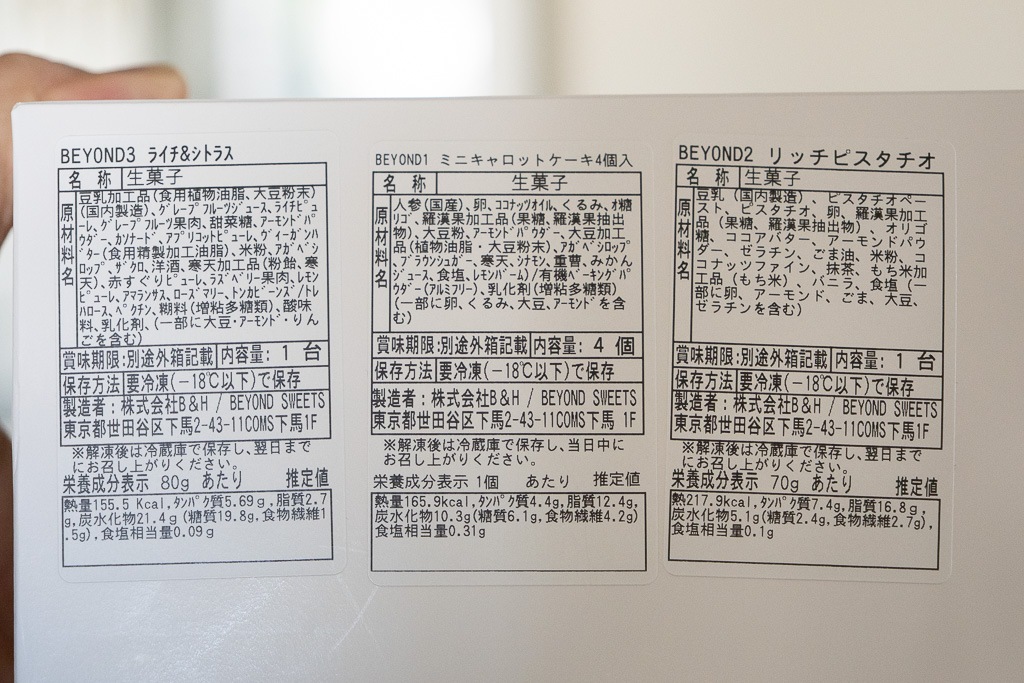 BEYOND3 ライチ&シトラス
名 称 生菓子
原材料名
豆乳加工品(食用植物油脂、大豆粉末)
(国内製造)、グレープフルーツジュース、ライチピュ
ーレ、グレープフルーツ果肉、甜菜糖、アーモンドパ
ウダー、カソナード、アプリコットピューレ、ヴィーガンバ
ター(食用精製加工油脂)、米粉、アガベシ
ロップ、ザクロ、洋酒、寒天加工品(粉飴、寒
天)、赤すぐりピューレ、ラズベリー果肉、レモン
ピューレ、アマランサス、ローズマリー、トンカビーンズ/トレ
ハロース、ペクチン、糊料(増粘多糖類)、酸味
料、乳化剤、(一部に大豆・アーモンド・りん
ごを含む)
賞味期限:別途外箱記載 内容量: 1 台
保存方法 要冷凍(−18℃以下)で保存
製造者:株式会社B&H / BEYOND SWEETS
東京都世田谷区下馬2-43-11COMS下馬1F
※解凍後は冷蔵庫で保存し、翌日まで
にお召し上がりください。
栄養成分表示 80g あたり 推定値
熱量155.5 Kcal,タンパク質5.69g,脂質2.7
g,炭水化物21.4g(糖質19.8g,食物繊維1
.5g),食塩相当量0.09g
BEYOND1 ミニキャロットケーキ4個入
名 称 生菓子
原材料名
人参(国産)、卵、ココナッツオイル、くるみ、オ糖
リゴ、羅漢果加工品(果糖、羅漢果抽出
物)、大豆粉、アーモンドパウダー、大豆加工
品(植物油脂・大豆粉末)、アガベシロップ、
ブラウンシュガー、寒天、シナモン、重曹、みかん
ジュース、食塩、レモンバーム)/有機ベーキングパ
ウダー(アルミフリー)、乳化剤(増粘多糖類)
(一部に卵、くるみ、大豆、アーモンドを含
む)
賞味期限:別途外箱記載 内容量: 4 個
保存方法 要冷凍(−18℃以下)で保存
製造者:株式会社B&H / BEYOND SWEETS
東京都世田谷区下馬2-43-11COMS下馬1F
※解凍後は冷蔵庫で保存し、当日中に
お召し上がりください。
栄養成分表示 1個 あたり 推定値
熱量165.9kcal,タンパク質4.4g,脂質12.4g,
炭水化物10.3g(糖質6.1g,食物繊維4.2g)
,食塩相当量0.31g
BEYOND2 リッチピスタチオ
名 称 生菓子
原材料名
豆乳(国内製造)、ピスタチオペー
スト、ピスタチオ、卵、羅漢果加工
品(果糖、羅漢果抽出物)、オリゴ
糖、ココアバター、アーモンドパウ
ダー、ゼラチン、ごま油、米粉、コ
コナッツファイン、抹茶、もち米加
工品(もち米)、バニラ、食塩(一
部に卵、アーモンド、ごま、大豆、
ゼラチンを含む)
賞味期限:別途外箱記載 内容量: 1 台
保存方法 要冷凍(−18℃以下)で保存
製造者:株式会社B&H / BEYOND SWEETS
東京都世田谷区下馬2-43-11COMS下馬1F
※解凍後は冷蔵庫で保存し、翌日まで
にお召し上がりください。
栄養成分表示 70g あたり 推定値
熱217.9kcal,タンパク質7.4g,脂質16.8g,
炭水化物5.1g(糖質2.4g,食物繊維2.7g),
食塩相当量0.1g